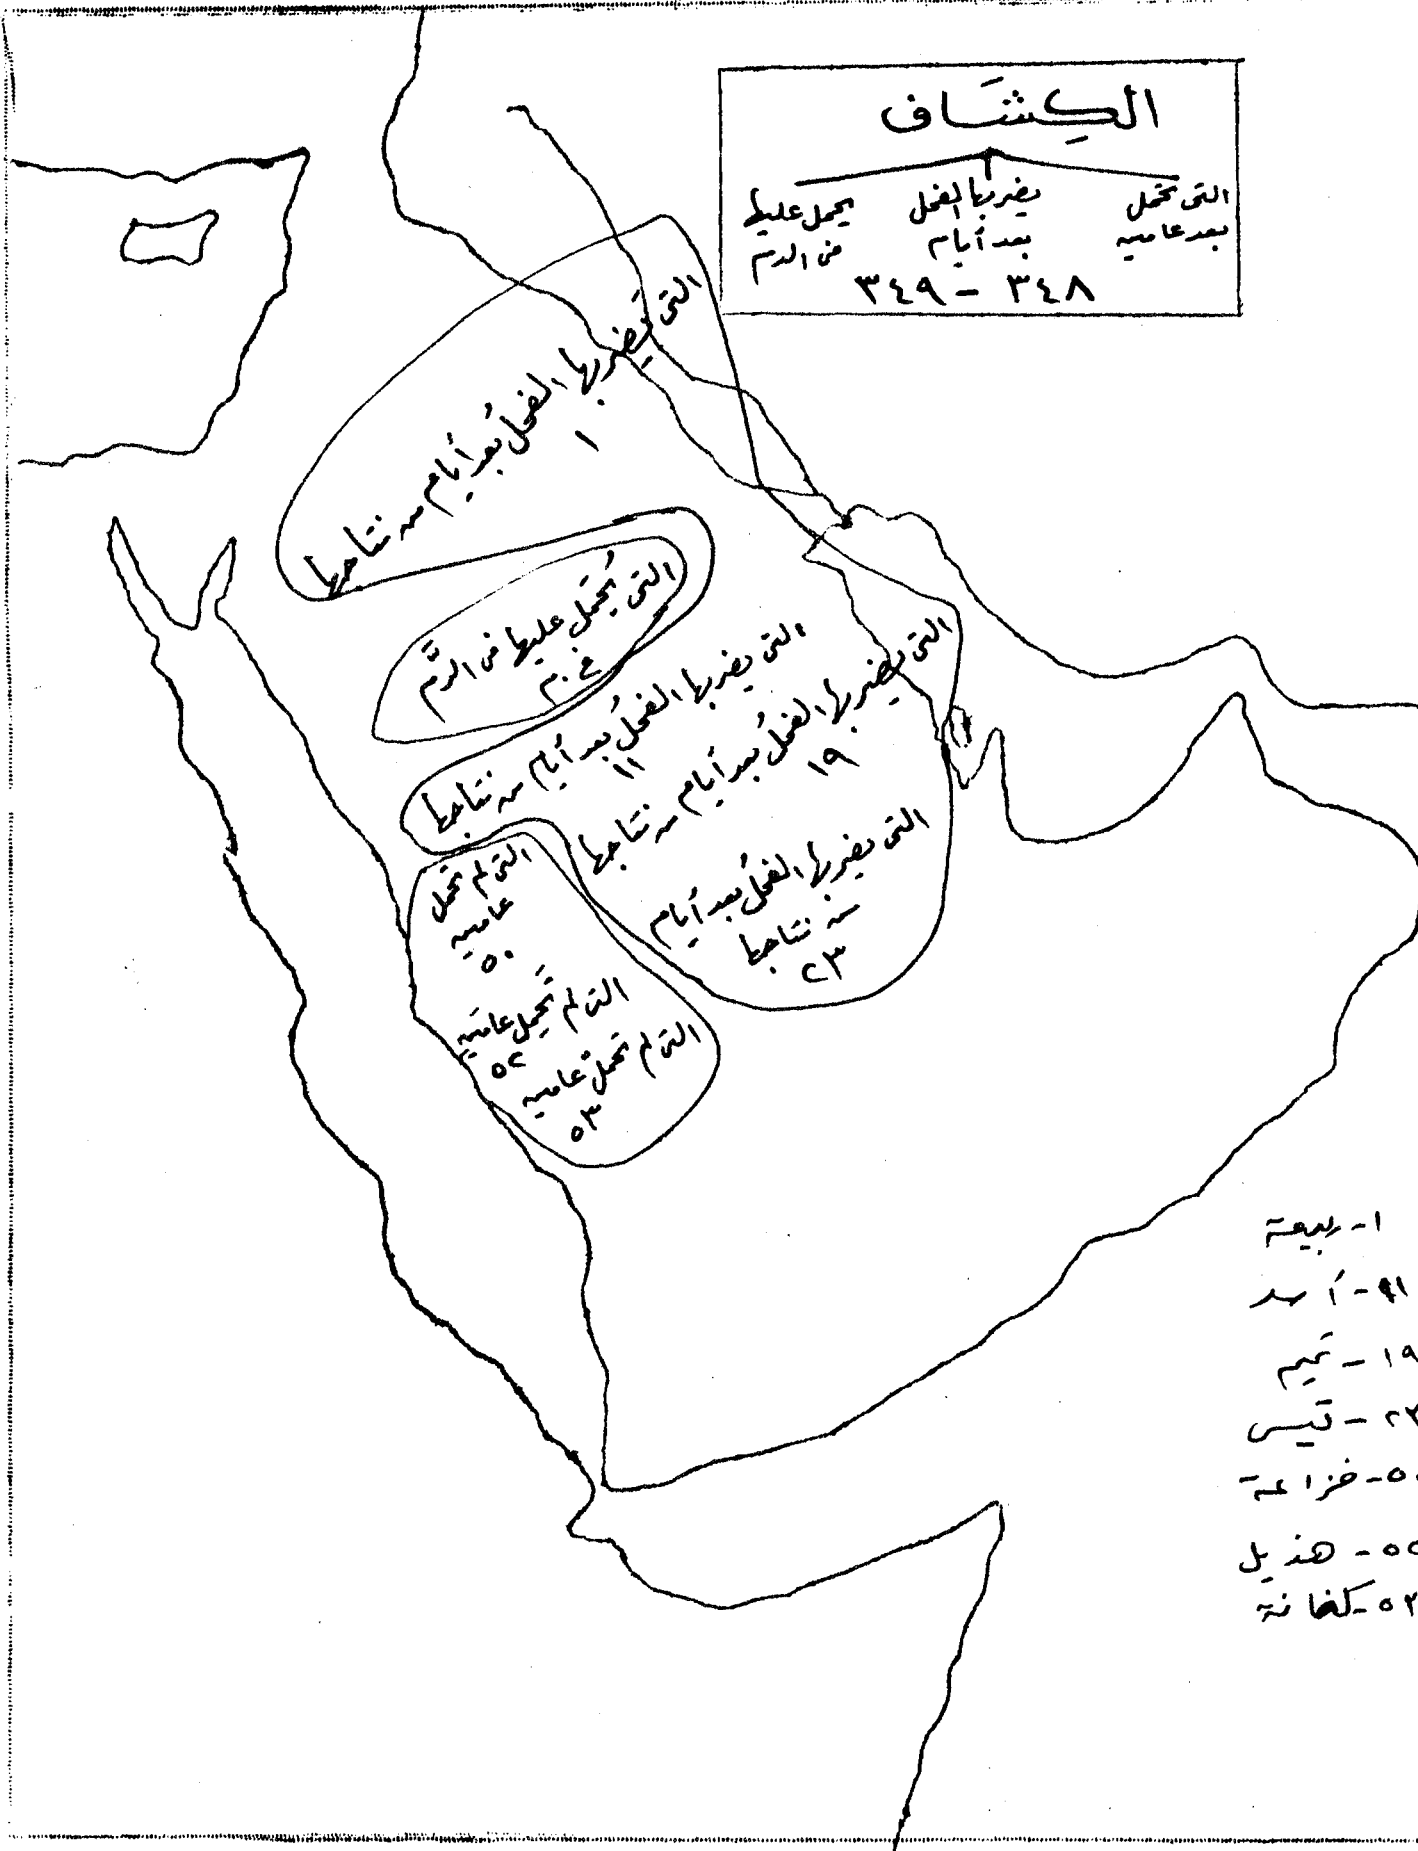 الكِشَاف
التى تحمل
بعد عامين
يضربها الفحل
بعد أيام
يحمل عليها
فى الدم
٣٤٨ - ٣٤٩
التى يَضربها الفحلُ بعد أيام من نتاجها
١
التى يُحمَل عليها فى الدَّم
التى يضربها الفحلُ بعد أيام من نتاجها
١١
التى يضربها الفحلُ بعد أيام من نتاجها
١٩
التى يضربها الفحلُ بعد أيام
من نتاجها
٢٣
التى لم تحمل
عامين
٥٠
التى لم تَحمِل عامَين
٥٢
التى لم تحملْ عامين
٥٣
١- ربيعة
١١- أسد
١٩ - تميم
٢٣ - قيس
٥٠- خزاعة
٥٢ - هذيل
٥٣-كنانة